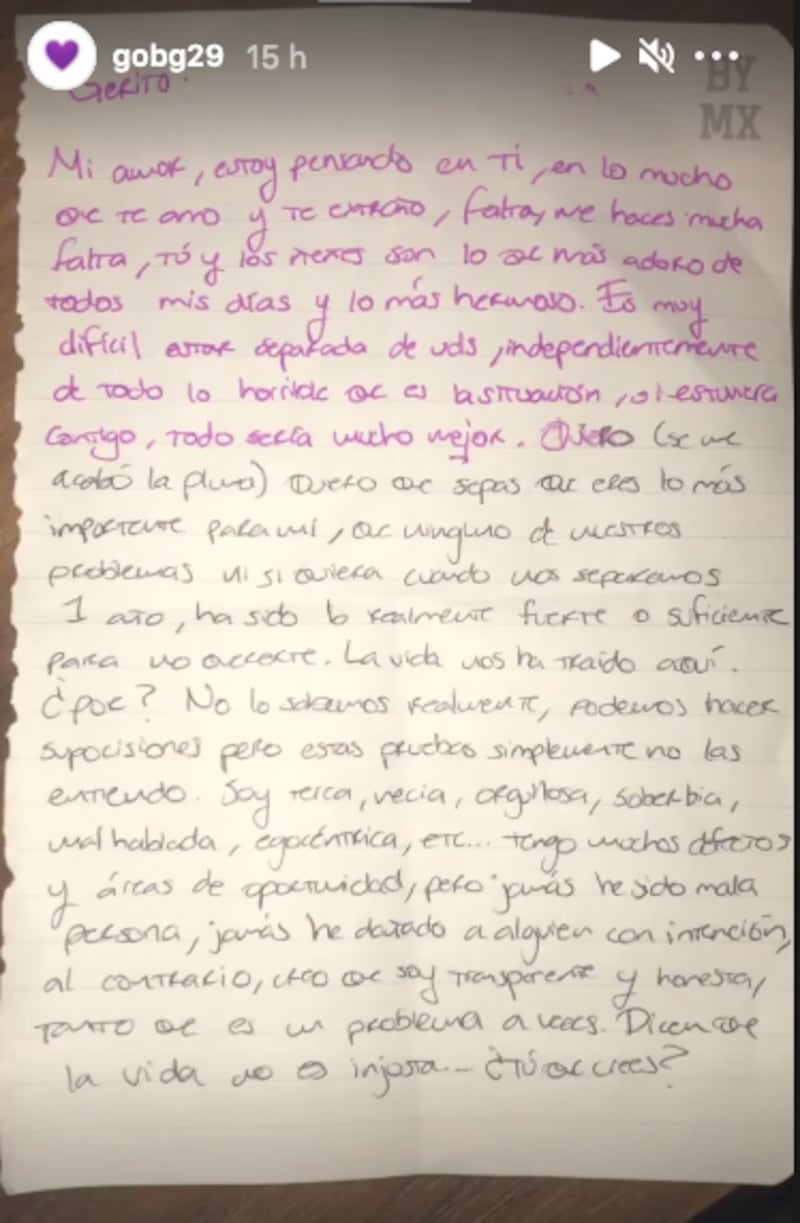 gobg29 15 h
BY
MX
Gerito.
Mi amor, estoy pensando en Ti, en lo mucho
qe te amo y te extraño, falta, me haces mucha
falta, tú y los nenes son lo qe más adoro de
todos mis días y lo más hermoso. Es muy
difícil estar separada de uds, independientemente
de todo lo horrible qe es la situación, si estuviera
contigo, todo sería mucho mejor. Quiero (se me
acabó la pluma) Quiero qe sepas qe eres lo más
importante para mí, qe ninguno de nuestros
problemas ni si quiera cuando nos separamos
1 año, ha sido lo realmente fuerte o suficiente
para no qererte. La vida nos ha traido aquí.
¿Poe? No lo sabemos realmente, podemos hacer
supocisiones pero estas pruebas simplemente no las
entiendo. Soy terca, necia, orgullosa, soberbia,
mal hablada, egocéntrica, etc... tengo muchos defectos
y áreas de oportunidad, pero jamás he sido mala
persona, jamás he dañado a alguien con intención,
al contrario, creo qe soy transparente y honesta,
tanto qe es un problema a veces. Dicen qe
la vida no es injusta... ¿Tú qe crees?